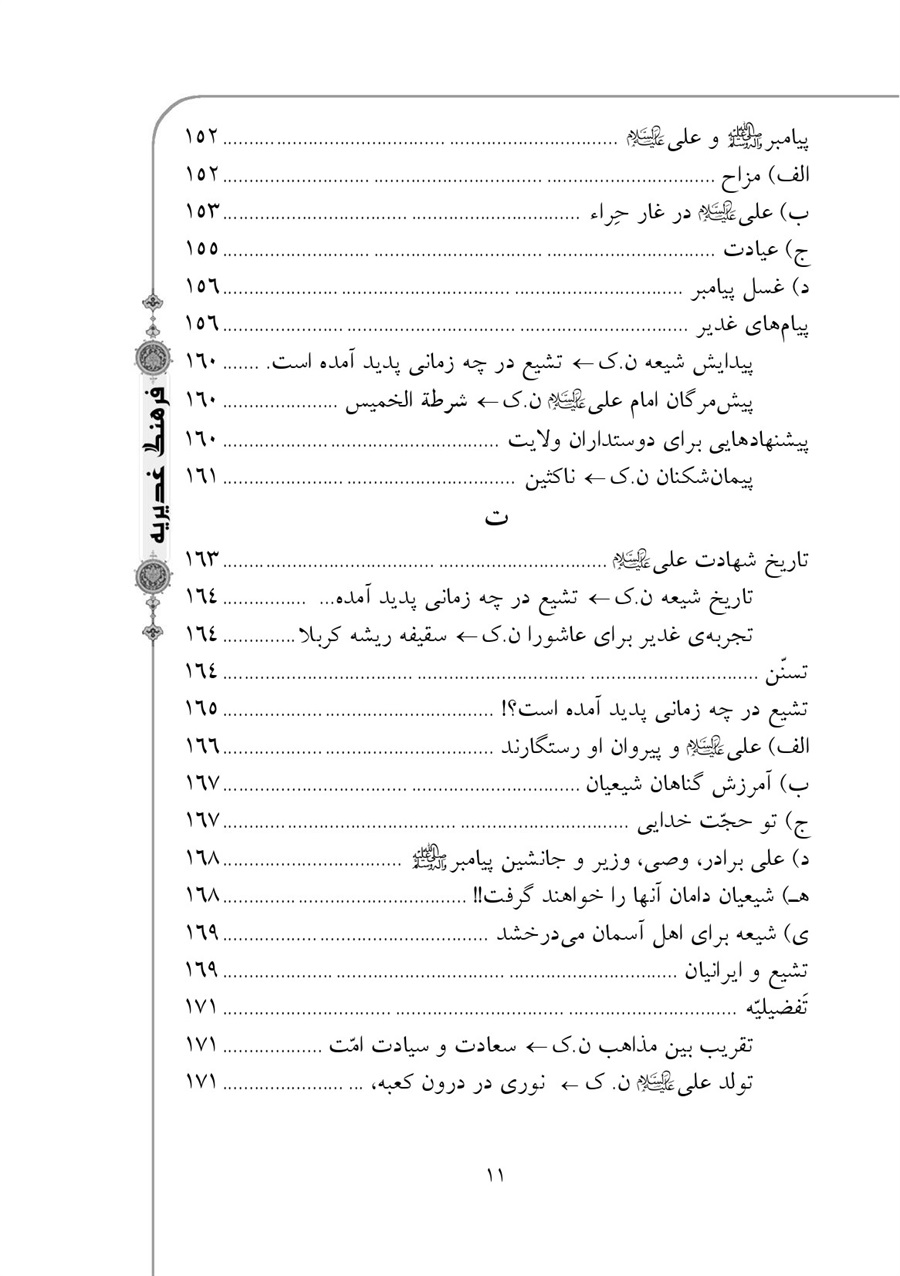 پیامبرﷺ و علی علیه‌السلام ........ ۱۵۲
الف) مزاح ........ ۱۵۲
ب) علی علیه‌السلام در غار حِراء ........ ۱۵۳
ج) عیادت ........ ۱۵۵
د) غسل پیامبر ........ ۱۵۶
پیام‌های غدیر ........ ۱۵۶
پیدایش شیعه ن.ک ← تشیع در چه زمانی پدید آمده است. ....... ۱۶۰
پیش‌مرگان امام علی علیه‌السلام ن.ک ← شرطة الخمیس ........ ۱۶۰
پیشنهادهایی برای دوستداران ولایت ........ ۱۶۰
پیمان‌شکنان ن.ک ← ناکثین ........ ۱۶۱
ت
تاریخ شهادت علی علیه‌السلام ........ ۱۶۳
تاریخ شیعه ن.ک ← تشیع در چه زمانی پدید آمده... ........ ۱۶۴
تجربه‌ی غدیر برای عاشورا ن.ک ← سقیفه ریشه کربلا ........ ۱۶۴
تسنّن ........ ۱۶۴
تشیع در چه زمانی پدید آمده است؟! ........ ۱۶۵
الف) علی علیه‌السلام و پیروان او رستگارند ........ ۱۶۶
ب) آمرزش گناهان شیعیان ........ ۱۶۷
ج) تو حجّت خدایی ........ ۱۶۷
د) علی برادر، وصی، وزیر و جانشین پیامبرﷺ ........ ۱۶۸
هـ) شیعیان دامان آنها را خواهند گرفت!! ........ ۱۶۸
ی) شیعه برای اهل آسمان می‌درخشد ........ ۱۶۹
تشیع و ایرانیان ........ ۱۶۹
تَفضیلیّه ........ ۱۷۱
تقریب بین مذاهب ن.ک ← سعادت و سیادت امّت ........ ۱۷۱
تولد علی علیه‌السلام ن. ک ← نوری در درون کعبه، ... ........ ۱۷۱
۱۱
فرهنگ غدیریه